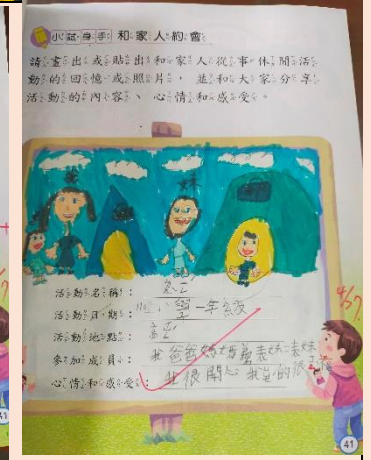 小試身手 和家人約會
請畫出或貼出和家人從事休閒活
動的回憶或照片，並和大家分享
活動的內容、心情和感受。
妹
活動名稱：
活動日期：小學一年級
活動地點：
參加成員：我爸爸媽媽 表妹 表妹
心情和感受：我很開心 我真的很
41